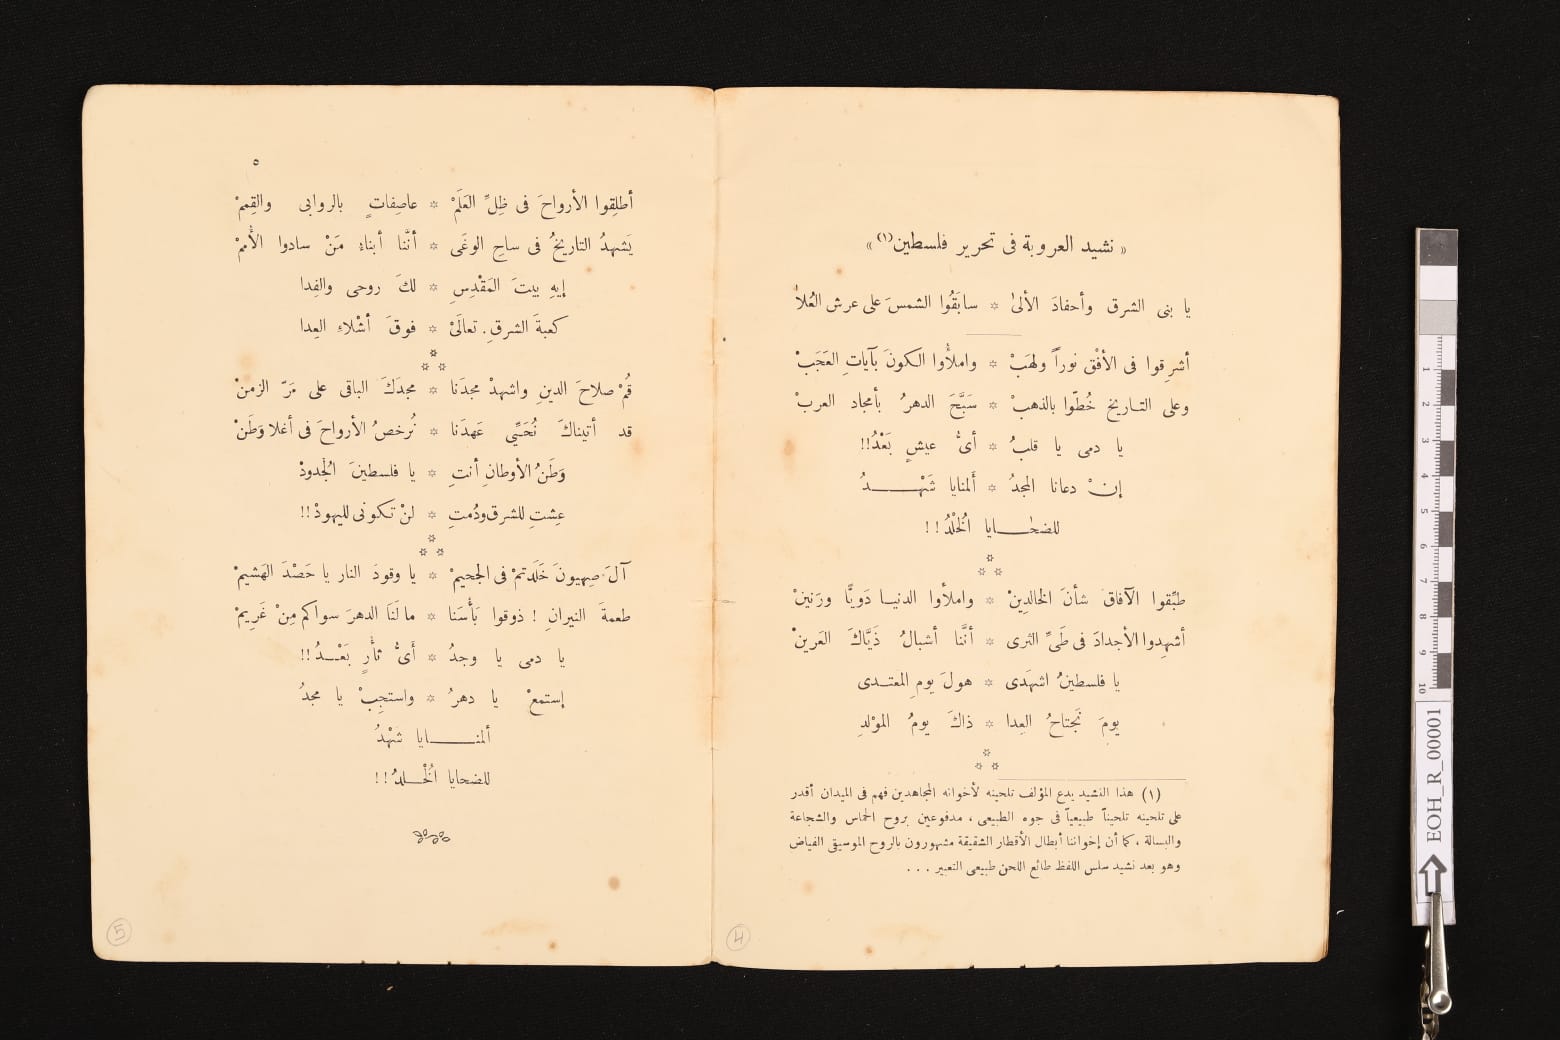 « نشيد العروبة فى تحرير فلسطين(١) »
يا بنى الشرق وأحفادَ الألىٰ * سابَقُوا الشمسَ على عرش العُلا
أشرِقوا فى الأفْق نوراً ولهَبْ * واملأُوا الكونَ بآياتِ العَجَبْ
وعلى التاريخ خُطّوا بالذهبْ * سَبَّحَ الدهرُ بأمجاد العربْ
يا دمى يا قلبُ * أىُّ عيشٍ بَعْدُ!!
إنْ دعانا المجدُ * ألمنايا شَهْدُ
للضحايا الُخلْدُ!!
طبِّقوا الآفاقَ شأنَ الخالدِينْ * واملأوا الدنيا دَوِيًّا ورَنينْ
أشهِدوا الأجدادَ فى طَىِّ الثرى * أنَّنا أشبالُ ذَيَّاكَ العَرينْ
يا فلسطينُ اشهَدى * هولَ يومِ المعتدى
يومَ نَجتاحُ العِدا * ذاكَ يومُ الموْلدِ
(١) هذا النشيد يدع المؤلف تلحينه لأخوانه المجاهدين فهم فى الميدان أقدر
على تلحينه تلحيناً طبيعياً فى جوه الطبيعى ، مدفوعين بروح الحماس والشجاعة
والبسالة ، كما أن إخواننا أبطال الأقطار الشقيقة مشهورون بالروح الموسيقى الفياض
وهو بعد نشيد سلس اللفظ طائع اللحن طبيعى التعبير . . .
4
٥
أطلِقوا الأرواحَ فى ظِلِّ العَلَمْ * عاصِفاتٍ بالروابى والقِممْ
يَشهدُ التاريخُ فى ساحِ الوغَى * أنَّنا أبناءِ مَنْ سادوا الأُممْ
إيهِ بيتَ المَقْدِسِ * لكَ روحى والفِدا
كعبةَ الشرقِ . تعالَىْ * فوقَ أشْلاءِ العِدا
قُمْ صلاحَ الدينِ واشهدْ مجدَنا * مجدَكَ الباقى على مَرّ الزمنْ
قد أتيناكَ نُحَيِّي عَهدَنا * نُرخصُ الأرواحَ فى أغلا وَطَنْ
وَطَنُ الأوطانِ أنتِ * يا فلسطينَ الجُدودْ
عِشتِ للشرق ودُمتِ * لنْ تكونى لليهودْ!!
آلَ صِهيونَ خَلَدتمْ فى الجحيمْ * يا وقودَ النار يا حَصْدَ الهَشيمْ
طعمةَ النيرانِ ! ذوقوا بَأْسَنا * ما لَنَا الدهرَ سواكم مِنْ غَرِيمْ
يا دمى يا وجدُ * أىُّ ثأْرٍ بَعْدُ!!
إستمعْ يا دهرُ * واستجِبْ يا مجدُ
ألمنايا شَهْدُ
للضحايا الُخْلدُ!!
5
1
2
3
4
5
6
7
8
9
10
EOH_R_00001